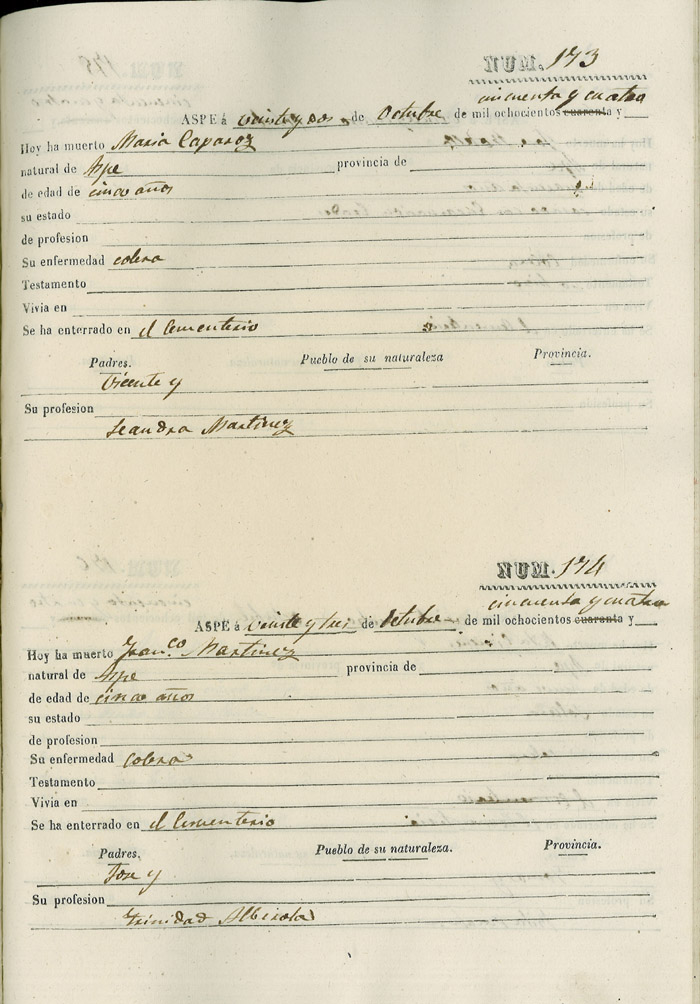 NUM. 173
cincuenta y cuatro
ASPE á veinte y dos de Octubre de mil ochocientos cuarenta y
Hoy ha muerto Maria Caparoz
natural de Aspe provincia de
de edad de cinco años
su estado
de profesion
Su enfermedad colera
Testamento
Vivia en
Se ha enterrado en el Cementerio
Padres. Pueblo de su naturaleza Provincia.
Vicente y
Su profesion
Leandra Martinez
NUM. 174
cincuenta y cuatro
ASPE á veinte y tres de Octubre de mil ochocientos cuaranta y
Hoy ha muerto Franco Martinez
natural de Aspe provincia de
de edad de cinco años
su estado
de profesion
Su enfermedad Colera
Testamento
Vivia en
Se ha enterrado en el Cementerio
Padres. Pueblo de su naturaleza. Provincia.
Jose y
Su profesion
Trinidad Alberola